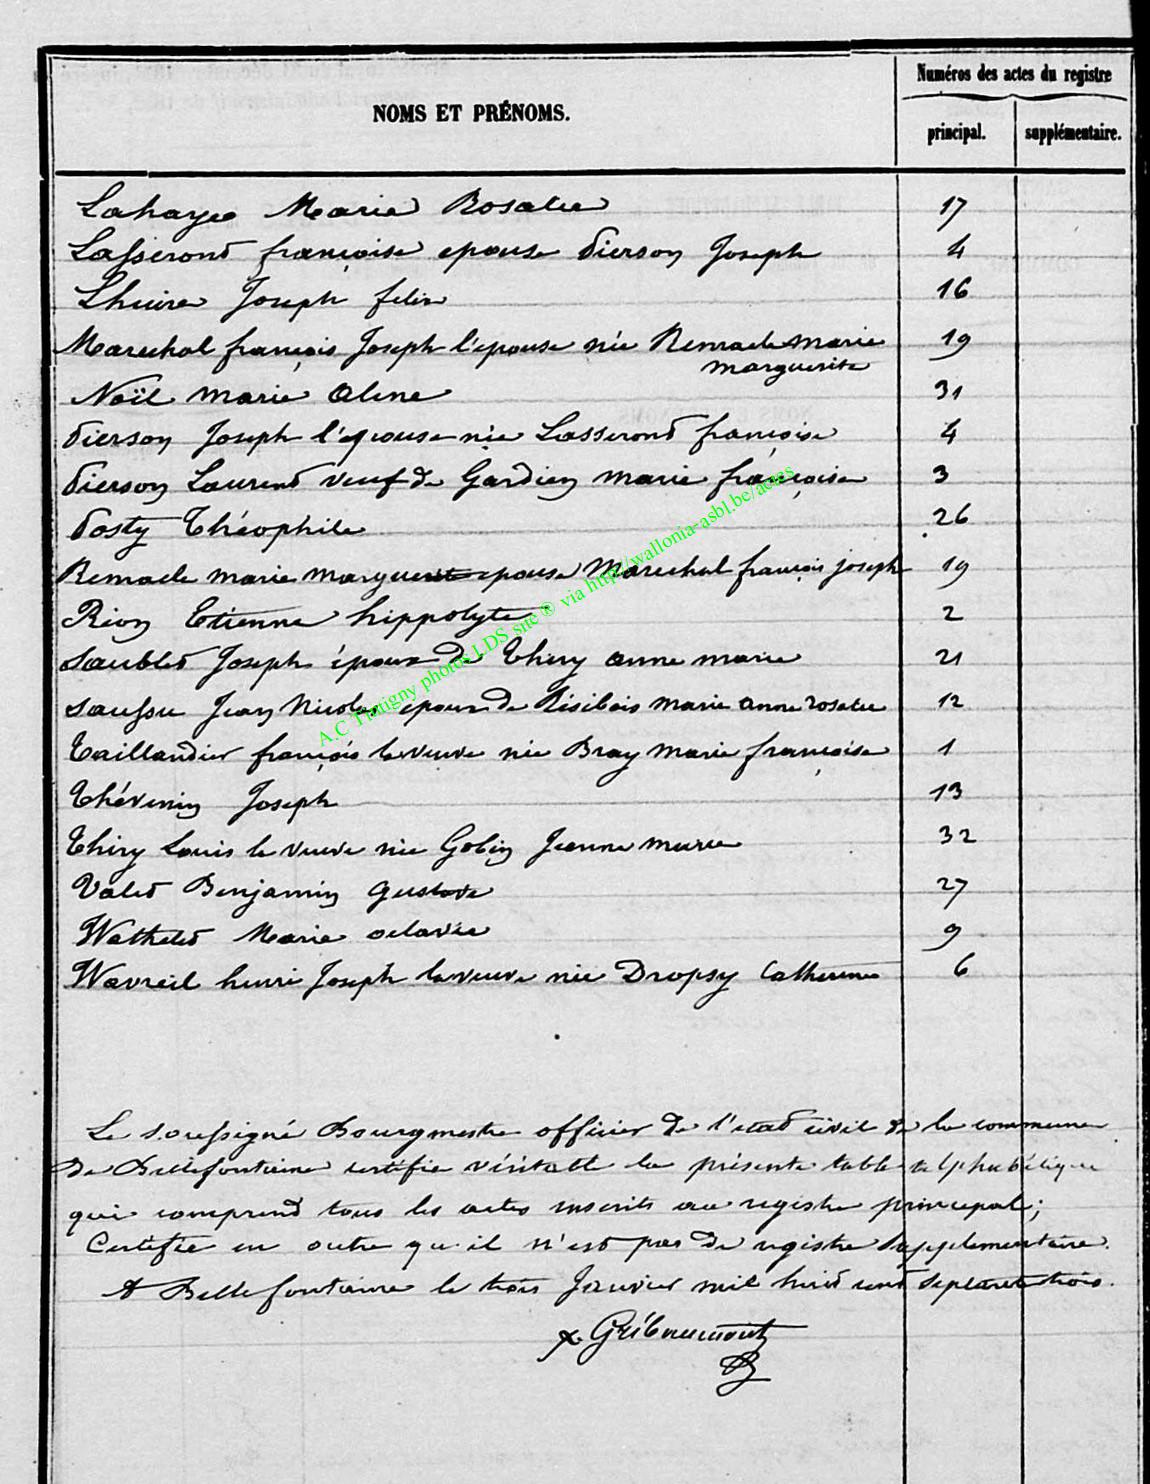 Numéros des actes du registre
NOMS ET PRÉNOMS.
principal. supplémentaire.
Lahaye Marie Rosalie 17
Lasseront françoise epouse Pierson Joseph 4
Lhuire Joseph felix 16
Marechal françois Joseph l'epouse née Remacle marie 19
marguerite
Noël marie Aline 31
Pierson Joseph l'epouse née Lasseront françoise 4
Pierson Laurent veuf de Gardien marie françoise 3
Posty Théophile 26
Remacle marie marguerite epouse Marechal françois joseph 19
Rion Etienne hippolyte 2
Saublet Joseph époux de Thiry anne marie 21
Saussu Jean Nicolas epoux de Risibois marie anne rosalie 12
Taillandier françois la veuve née Bray Marie françoise 1
Thévenin Joseph 13
Thiry Louis la veuve née Gobin Jeanne marie 32
Valet Benjamin gustave 27
Wathelet Marie octavie 9
Wavreil henri Joseph la veuve née Dropsy Catherine 6
Le soussigné Bourgmestre officier de l'état civil de la commune
de Bellefontaine certifie véritable la présente table alphabétique
qui comprend tous les actes inscrits au registre principal;
Certifie en outre qu'il n'est pas de registre supplémentaire.
A Bellefontaine le trois Janvier mil huit cent septante trois.
A.C Tintigny photos LDS site ® via http://wallonia-asbl.be/actes